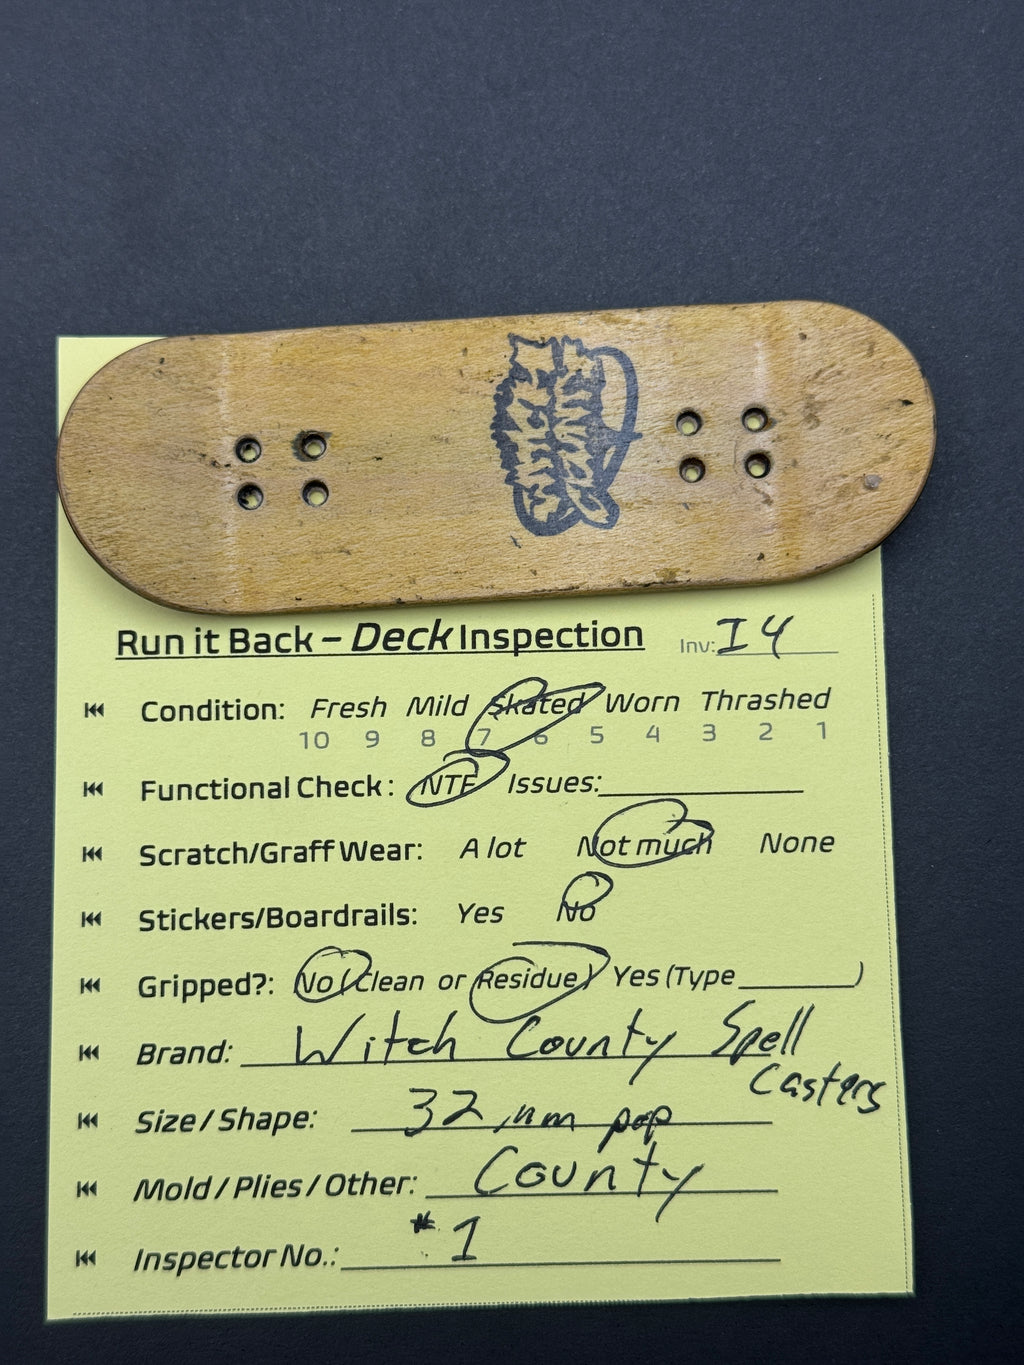 WITCH
COUNTY
Run it Back – Deck Inspection Inv: I4
Condition: Fresh Mild Skated Worn Thrashed
10 9 8 7 6 5 4 3 2 1
Functional Check: NTF Issues:
Scratch/Graff Wear: A lot Not much None
Stickers/Boardrails: Yes No
Gripped?: No (Clean or Residue) Yes (Type )
Brand: Witch County Spell
Casters
Size / Shape: 32 mm pop
Mold / Plies / Other: County
Inspector No.: #1